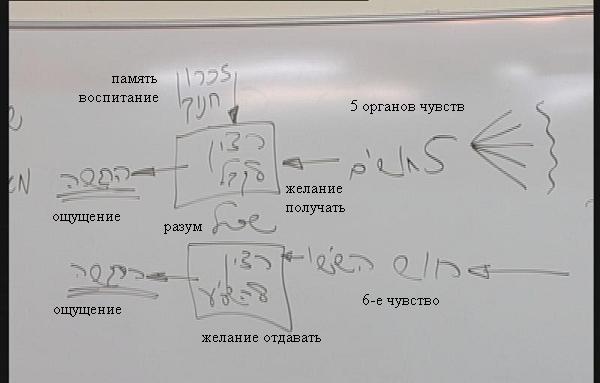 память
воспитание
זכרון
חנוך
5 органов чувств
רצון
לקבל
5 חושים
הרגשה
желание
получать
ощущение
разум
שכל
רצון
להשפיע
חוש הששי
הרגשה
6-е чувство
ощущение
желание отдавать